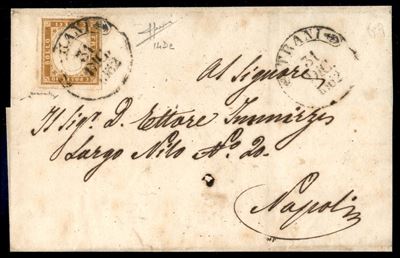 TRANI
31
DIC
1862
14De
TRANI
31
DIC
1862
Al Signore
Il Sig.r D. Ettore
Largo Nilo N.o 20.
Napoli